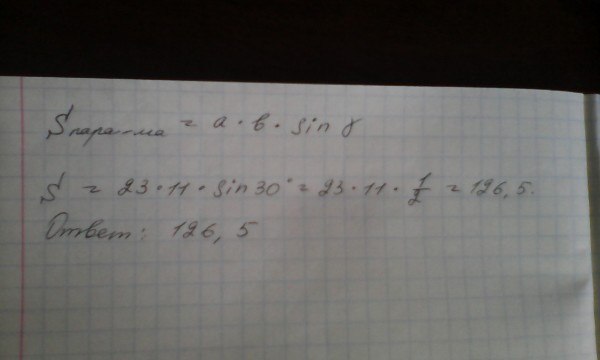 Sпара-ма = a · b · sin γ
S = 23 · 11 · sin 30° = 23 · 11 · 1/2 = 126,5.
Ответ: 126,5